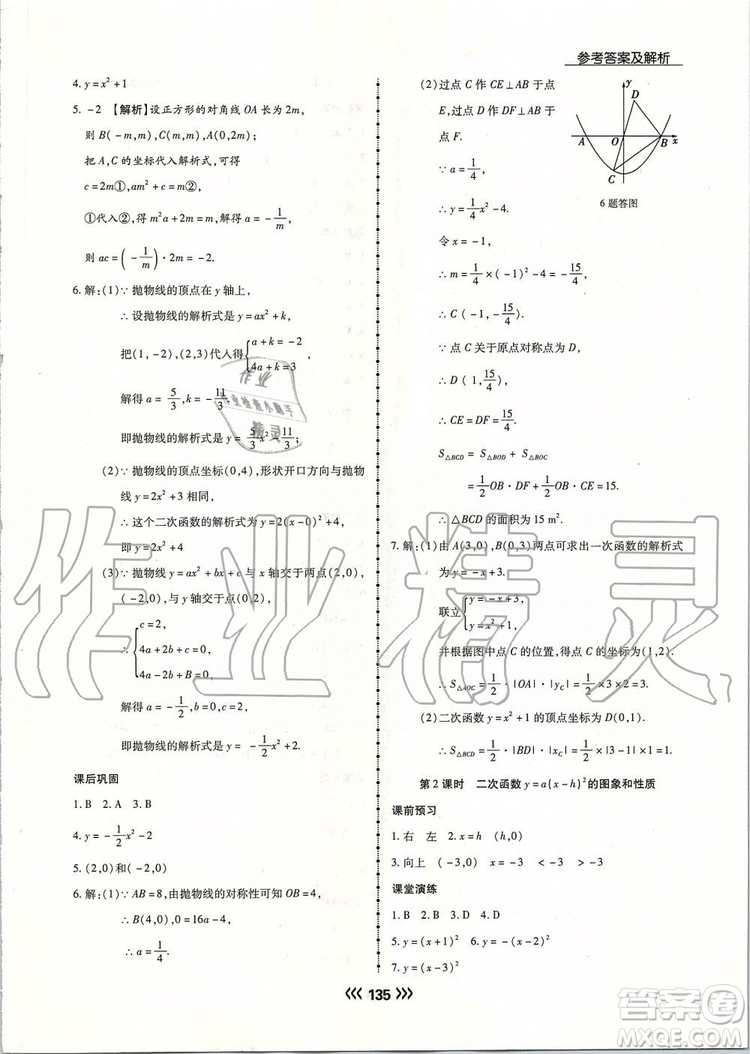 参考答案及解析
4. y=x²+1
5. -2 【解析】设正方形的对角线 OA 长为 2m,
则 B(-m,m),C(m,m),A(0,2m);
把 A,C 的坐标代入解析式,可得
c=2m①,am²+c=m②,
①代入②,得 m²a+2m=m,解得 a=-1/m,
则 ac=(-1/m)·2m=-2.
6. 解:(1)∵抛物线的顶点在 y 轴上,
∴设抛物线的解析式是 y=ax²+k,
把(1,-2),(2,3)代入得{a+k=-2
4a+k=3
解得 a=5/3,k=-11/3,
即抛物线的解析式是 y=5/3x²-11/3;
(2)∵抛物线的顶点坐标(0,4),形状开口方向与抛物
线 y=2x²+3 相同,
∴这个二次函数的解析式为 y=2(x-0)²+4,
即 y=2x²+4
(3)∵抛物线 y=ax²+bx+c 与 x 轴交于两点(2,0),
(-2,0),与 y 轴交于点(0,2),
∴{c=2,
4a+2b+c=0,
4a-2b+c=0,
解得 a=-1/2,b=0,c=2,
即抛物线的解析式是 y=-1/2x²+2.
课后巩固
1. B 2. A 3. B
4. y=-1/2x²-2
5. (2,0)和(-2,0)
6. 解:(1)∵AB=8,由抛物线的对称性可知 OB=4,
∴B(4,0),0=16a-4,
∴a=1/4.
(2)过点 C 作 CE⊥AB 于点
E,过点 D 作 DF⊥AB 于
点 F.
∵a=1/4,
∴y=1/4x²-4.
令 x=-1,
∴m=1/4×(-1)²-4=-15/4,
∴C(-1,-15/4).
∵点 C 关于原点对称点为 D,
∴D(1,15/4),
∴CE=DF=15/4,
S△BCD=S△BOD+S△BOC
=1/2OB·DF+1/2OB·CE=15.
∴△BCD 的面积为 15 m².
y
D
A
O
B
x
C
6题答图
7. 解:(1)由 A(3,0),B(0,3)两点可求出一次函数的解析式
为 y=-x+3,
联立{y=-x+3,
y=x²+1,
并根据图中点 C 的位置,得点 C 的坐标为(1,2).
∴S△AOC=1/2·|OA|·|yC|=1/2×3×2=3.
(2)二次函数 y=x²+1 的顶点坐标为 D(0,1).
∴S△BCD=1/2·|BD|·|xC|=1/2×|3-1|×1=1.
第 2 课时 二次函数 y=a(x-h)²的图象和性质
课前预习
1. 右 左 2. x=h (h,0)
3. 向上 (-3,0) x=-3 <-3 >-3
课堂演练
1. B 2. B 3. D 4. D
5. y=(x+1)² 6. y=-(x-2)²
7. y=(x-3)²
135
作业精灵
作业
作业检查小助手
精灵
答案卷
MXQE.COM